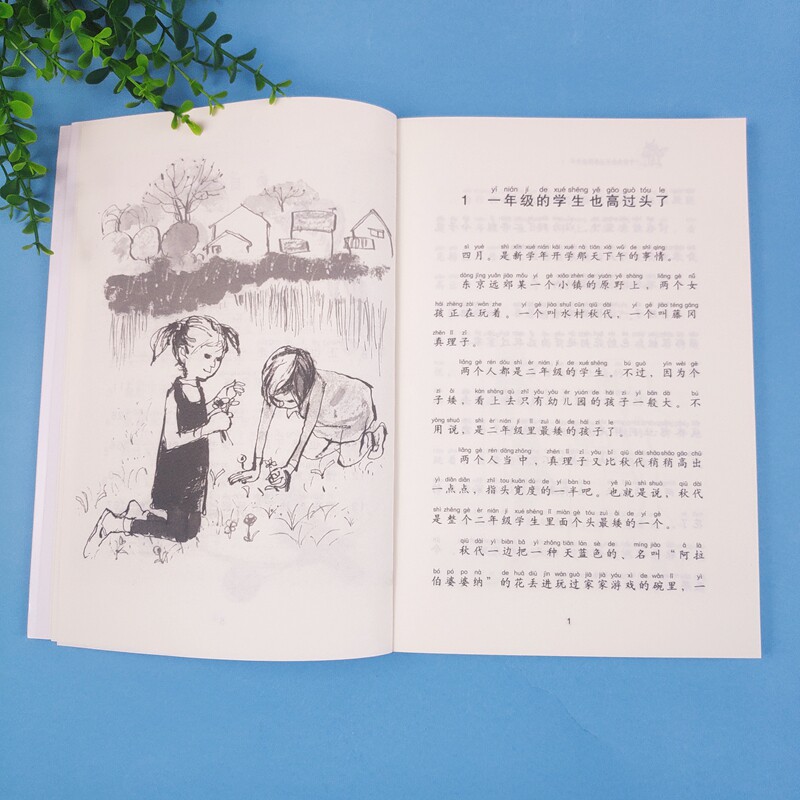 yī nián jí de xué shēng yě gāo guò tóu le
1 一年级的学生也高过头了
sì yuè shì xīn xué nián kāi xué nà tiān xià wǔ de shì qing
四月。是新学年开学那天下午的事情。
dōng jīng yuǎn jiāo mǒu yí gè xiǎo zhèn de yuán yě shàng liǎng gè nǚ
东京远郊某一个小镇的原野上，两个女
hái zhèng zài wán zhe yí gè jiào shuǐ cūn qiū dài yí gè jiào téng gāng
孩正在玩着。一个叫水村秋代，一个叫藤冈
zhēn lǐ zǐ
真理子。
liǎng gè rén dōu shì èr nián jí de xué shēng bú guò yīn wèi gè
两个人都是二年级的学生。不过，因为个
zi ǎi kàn shàng qù zhǐ yǒu yòu ér yuán de hái zi yì bān dà bú
子矮，看上去只有幼儿园的孩子一般大。不
yòng shuō shì èr nián jí lǐ zuì ǎi de hái zi le
用说，是二年级里最矮的孩子了。
liǎng gè rén dāng zhōng zhēn lǐ zǐ yòu bǐ qiū dài shāo shāo gāo chū
两个人当中，真理子又比秋代稍稍高出
yì diǎn diǎn zhǐ tou kuān dù de yí bàn ba yě jiù shì shuō qiū dài
一点点，指头宽度的一半吧。也就是说，秋代
shì zhěng gè èr nián jí xué shēng lǐ miàn gè tóu zuì ǎi de yí gè
是整个二年级学生里面个头最矮的一个。
qiū dài yì biān bǎ yì zhǒng tiān lán sè de míng jiào ā lā
秋代一边把一种天蓝色的、名叫“阿拉
bó pó po nà de huā diū jìn wán guò jiā jiā yóu xì de wǎn lǐ yì
伯婆婆纳”的花丢进玩过家家游戏的碗里，一
1